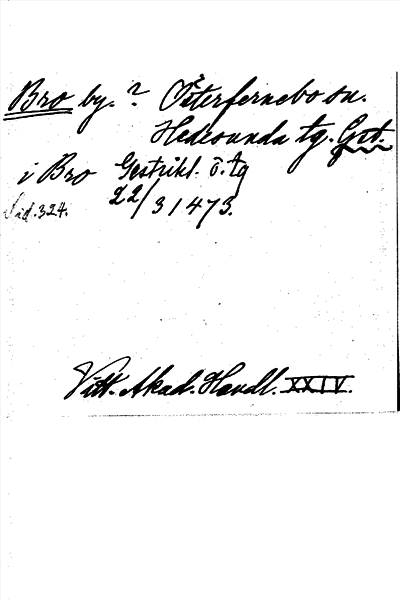 Bro by. ? Österfernebo sn.
Hedesunda tg. Gst.
i Bro Gestrikl. ö. tg
Sid. 324. 22/3 1473.
Vitt. Akad. Handl. XXIV.